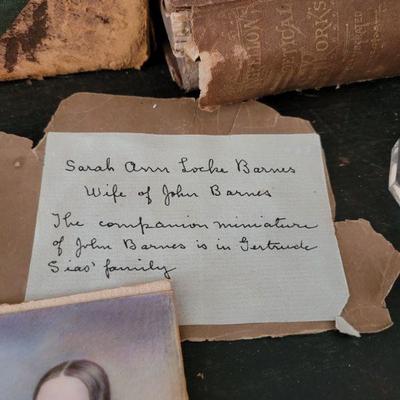 WORKS
Sarah Ann Locke Barnes
Wife of John Barnes
The companion miniature
of John Barnes is in Gertrude
Sias' family